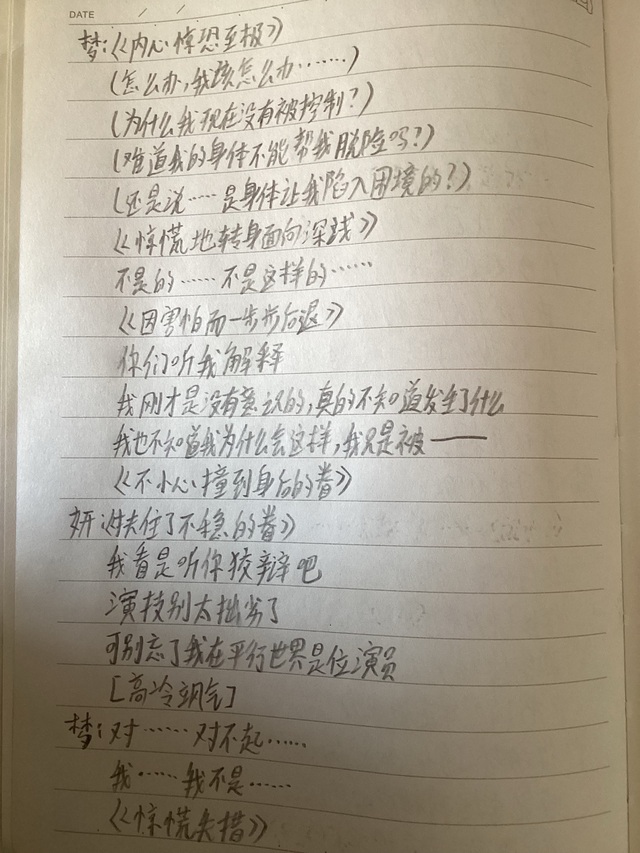 DATE / /
梦:《内心惊恐至极》
(怎么办,我该怎么办……)
(为什么我现在没有被控制?)
(难道我的身体不能帮我脱险吗?)
(还是说……是身体让我陷入困境的?)
《惊慌地转身面向深践》
不是的……不是这样的……
《因害怕而一步步后退》
你们听我解释
我刚才是没有意识的,真的不知道发生了什么
我也不知道我为什么会这样,我只是被——
《不小心撞到身后的眷》
妍:《扶住了不稳的眷》
我看是听你狡辩吧
演技别太拙劣了
可别忘了我在平行世界是位演员
[高冷飒气]
梦:对……对不起……
我……我不是……
《惊慌失措》